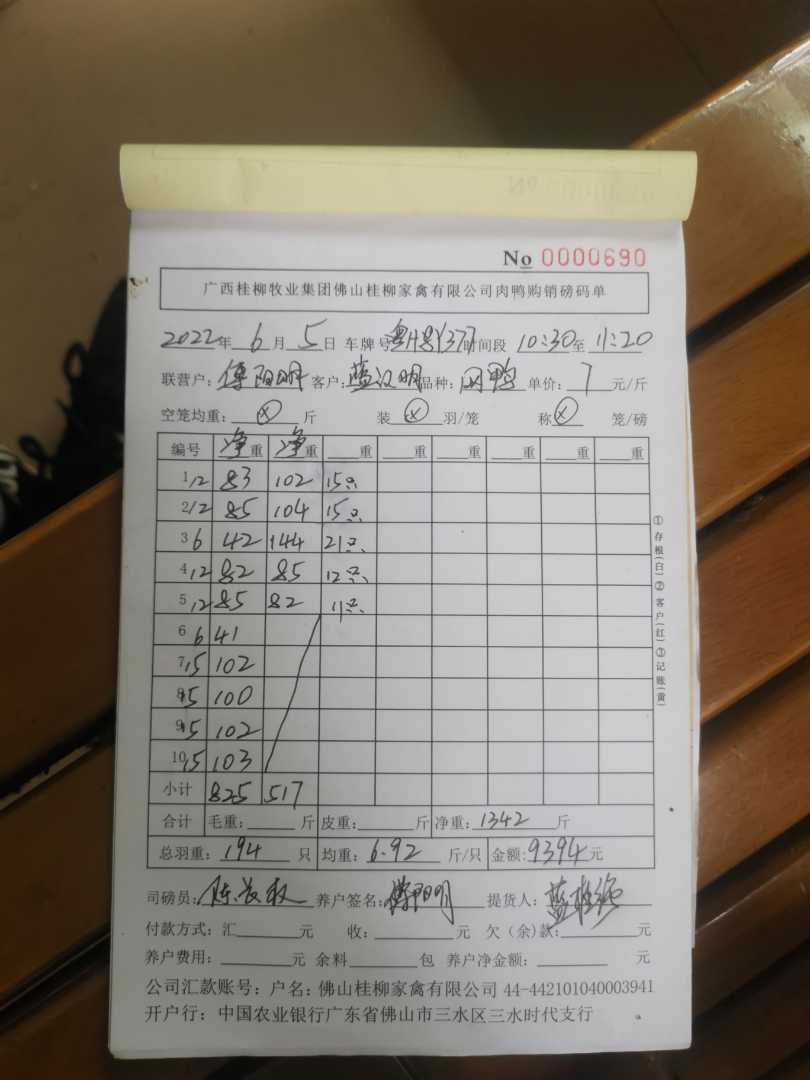 No 0000690
广西桂柳牧业集团佛山桂柳家禽有限公司肉鸭购销磅码单
2022年 6月 5日 车牌号 时间段 10:30至 11:20
联营户: 傅阳明 客户: 蓝汉明 品种: 肉鸭 单价: 7 元/斤
空笼均重: ⊗ 斤 装 ⊗ 羽/笼 称 ⊗ 笼/磅
编号 净重 净重 重 重 重 重 重 重
1 12 83 102 15只
2 12 85 104 15只
3 6 42 144 21只
4 12 82 85 12只
5 12 85 82 11只
6 6 41
7 15 102
8 15 100
9 15 102
10 15 103
小计 825 517
合计 毛重: 斤 皮重: 斤 净重: 1342 斤
总羽重: 194 只 均重: 6.92 斤/只 金额: 9394元
司磅员: 陈 养户签名: 傅阳明 提货人: 蓝
付款方式: 汇 元 收: 元 欠(余)款: 元
养户费用: 元 余料 包 养户净金额: 元
公司汇款账号: 户名: 佛山桂柳家禽有限公司 44-442101040003941
开户行: 中国农业银行广东省佛山市三水区三水时代支行
①存根(白)②客户(红)③记账(黄)